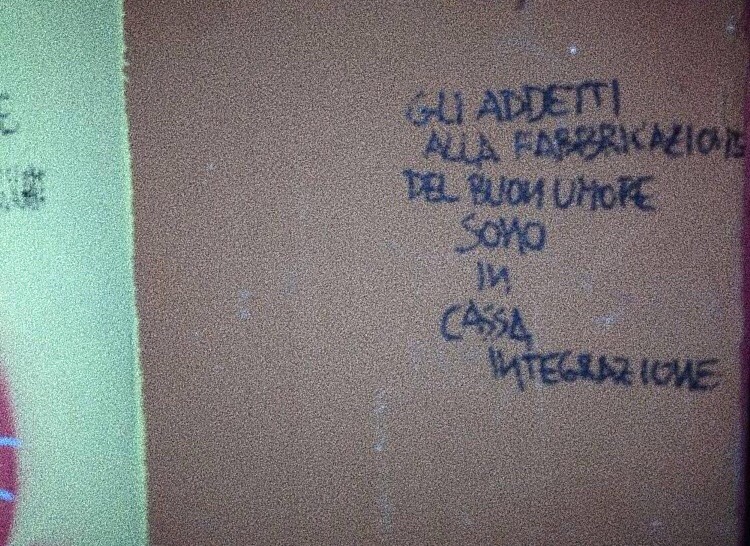 GLI ADDETTI
ALLA FABBRICAZIONE
DEL BUON UMORE
SONO
IN
CASSA
INTEGRAZIONE